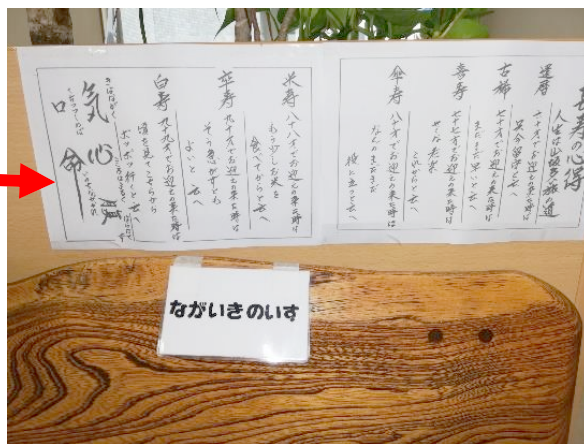 長寿の心得
人生は山坂多い旅の道
還暦
六十才でお迎えの来た時は
只今留守と云へ
古稀
七十才でお迎えの来た時は
まだまだ早いと云へ
喜寿
七十七才でお迎えの来た時は
せくな老楽
これからと云へ
傘寿
八十才でお迎えの来た時は
なんのまだまだ
役に立つと云へ
米寿
八十八才でお迎えの来た時は
もう少しお米を
食べてからと云へ
卒寿
九十才でお迎えの来た時は
そう急がずとも
よいと云へ
白寿
九十九才でお迎えの来た時は
頃を見てこちらから
ボツボツ行くと云へ
気
心
口
命
ながいきのいす